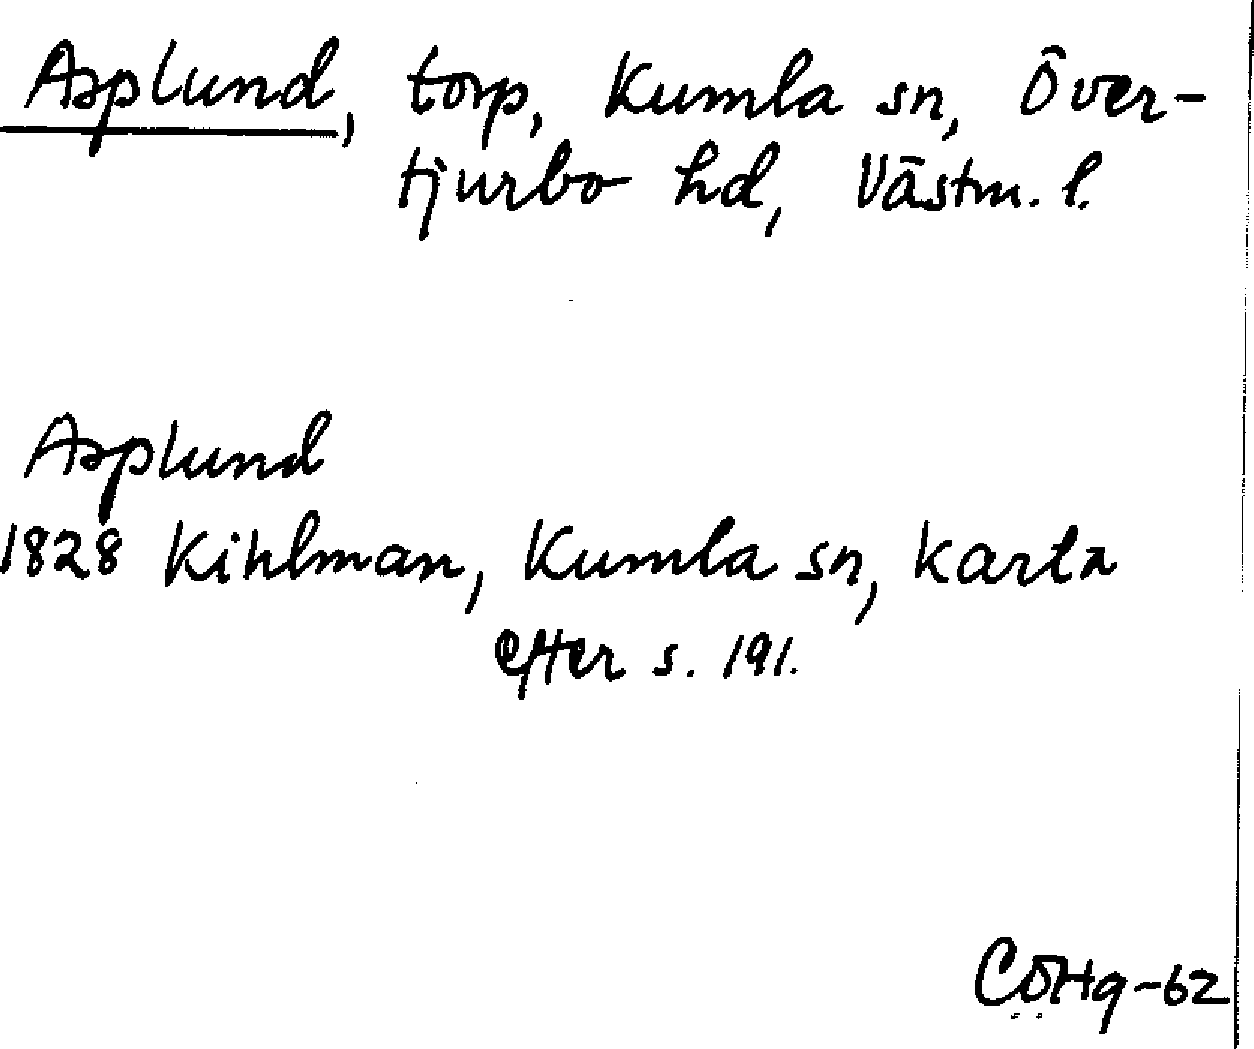 Asplund, torp, Kumla sn, Över-
tjurbo hd, Västm. l.
Asplund
1828 Kihlman, Kumla sn, karta
efter s. 191.
CÖHg-62